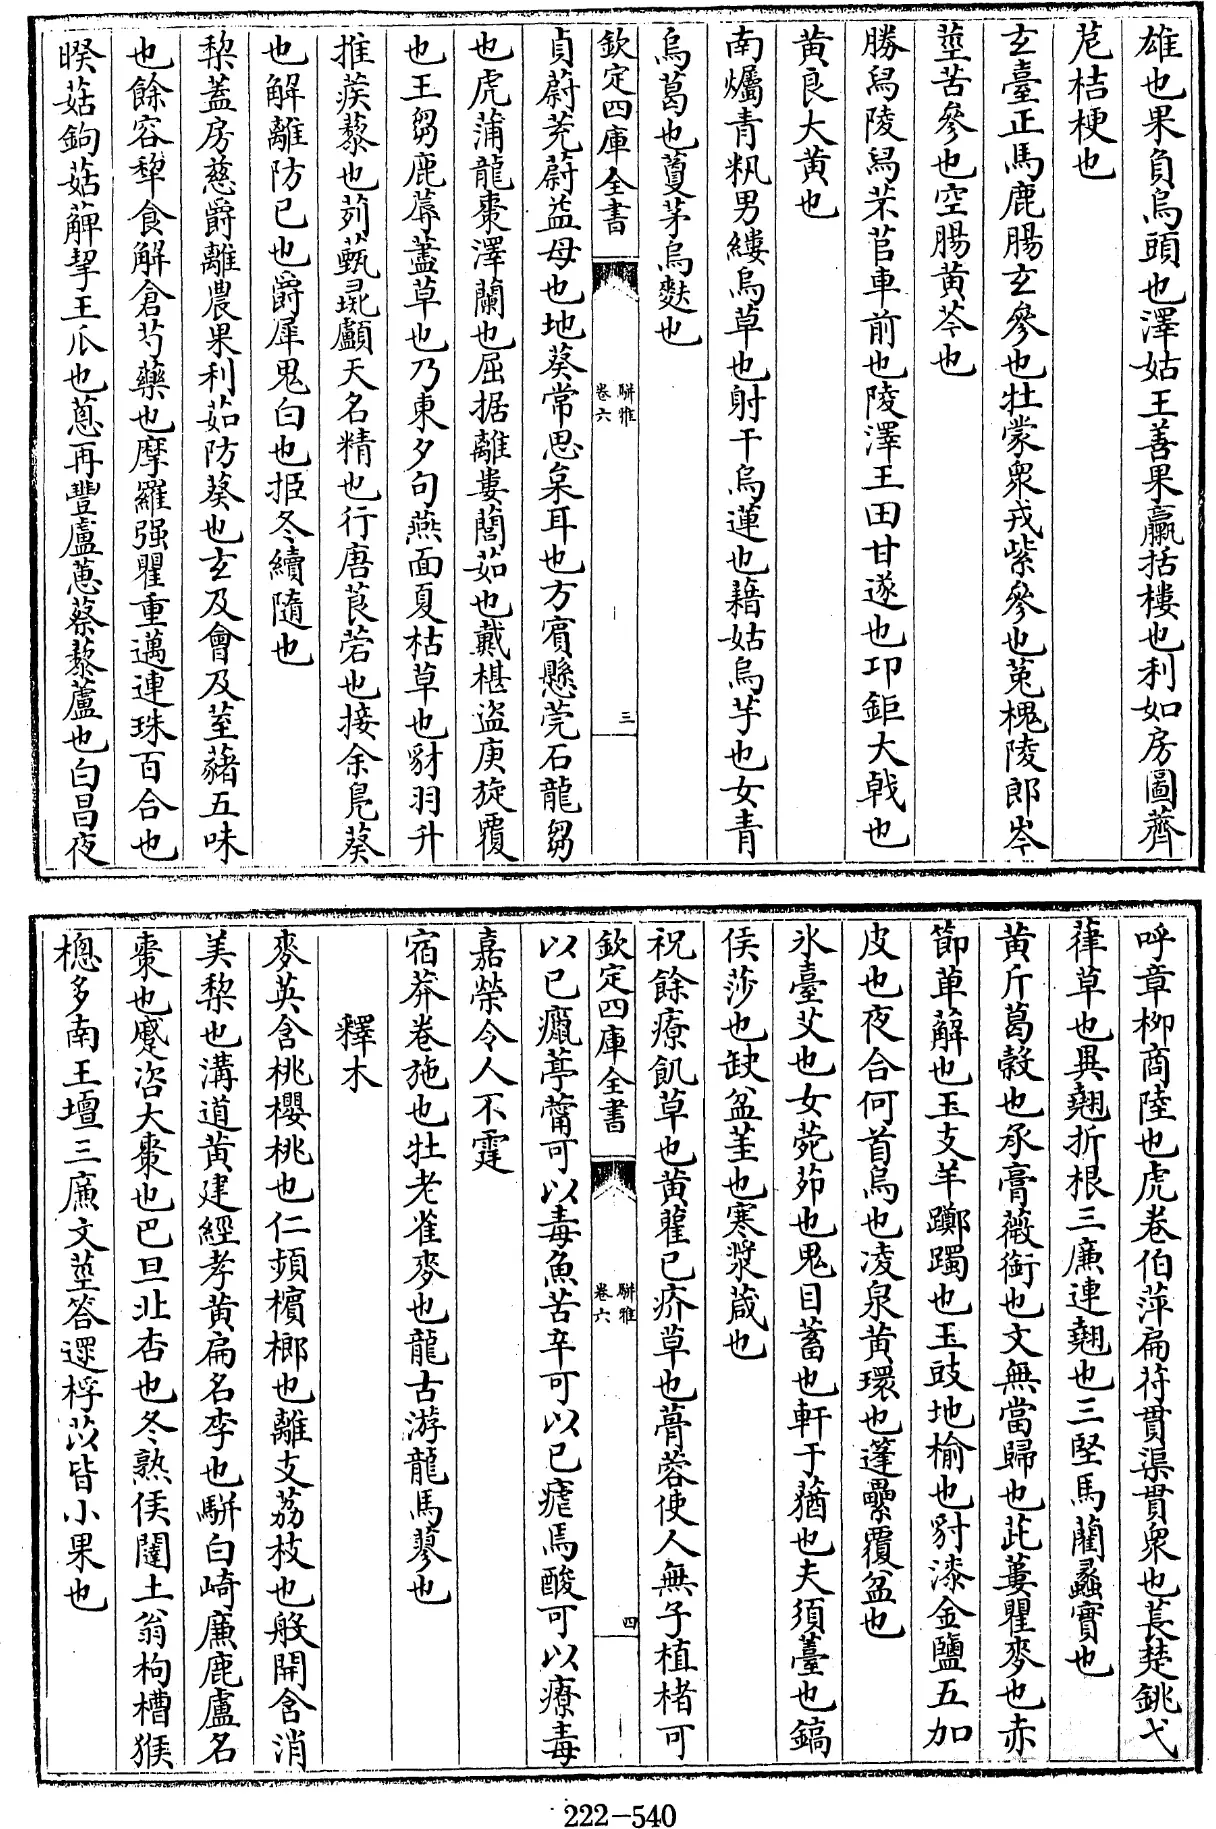 雄也果負烏頭也澤姑王善果臝括樓也利如房圖薺
苨桔梗也
玄臺正馬鹿腸玄參也牡蒙衆戎紫參也菟槐陵郎岑
莖苦參也空腸黄芩也
勝舄陵舄芣苢車前也陵澤王田甘遂也卭鉅大戟也
黄良大黄也
南燭青䊏男縷烏草也射干烏蓮也藉姑烏芋也女青
烏葛也蔓茅烏麩也
欽定四庫全書
駢雅
卷六
三
貞蔚茺蔚益母也地葵常思枲耳也方賓懸莞石龍芻
也虎蒲龍棗澤蘭也屈据離婁䕡茹也戴椹盗庚旋覆
也王芻鹿蓐藎草也乃東夕句燕面夏枯草也豺羽升
推蒺藜也茢薽豕首天名精也行唐莨菪也接余鳧葵
也解離防已也爵犀鬼臼也拒冬續隨也
棃蓋房慈爵離農果利茹防葵也玄及會及荎蕏五味
也餘容犂食解倉芍藥也摩羅强瞿重邁連珠百合也
睽菇鉤菇䕠挈王瓜也蔥苒豐蘆蔥葵藜蘆也白昌夜
呼章柳商陸也虎卷伯萍扁苻貫渠貫衆也萇楚銚弋
葎草也異翹折根三廉連翹也三堅馬藺蠡實也
黄斤葛榖也承膏薇銜也文無當歸也茈萋瞿麥也赤
節萆薢也玉支羊躑躅也玉豉地榆也豺漆金鹽五加
皮也夜合何首烏也凌泉黄環也蓬虆覆盆也
氷臺艾也女菀茆也鬼目蓄也軒于蕕也夫須薹也鎬
侯莎也缺盆堇也寒漿葴也
祝餘療飢草也黄雚已疥草也蓇蓉使人無子植楮可
欽定四庫全書
駢雅
卷六
四
以已癙葶薴可以毒魚苦辛可以已瘧馬酸可以療毒
嘉榮令人不霆
宿莽卷施也牡老雀麥也龍古游龍馬蓼也
釋木
麥英含桃櫻桃也仁頻檳榔也離支荔枝也般開含消
美棃也溝道黄建經孝黄扁名李也駢白崎廉鹿盧名
棗也蹙咨大棗也巴旦北杏也冬熟侯闥土翁枸槽猴
槵多南王壇三㢘文莖答遝桴苡皆小果也
222-540